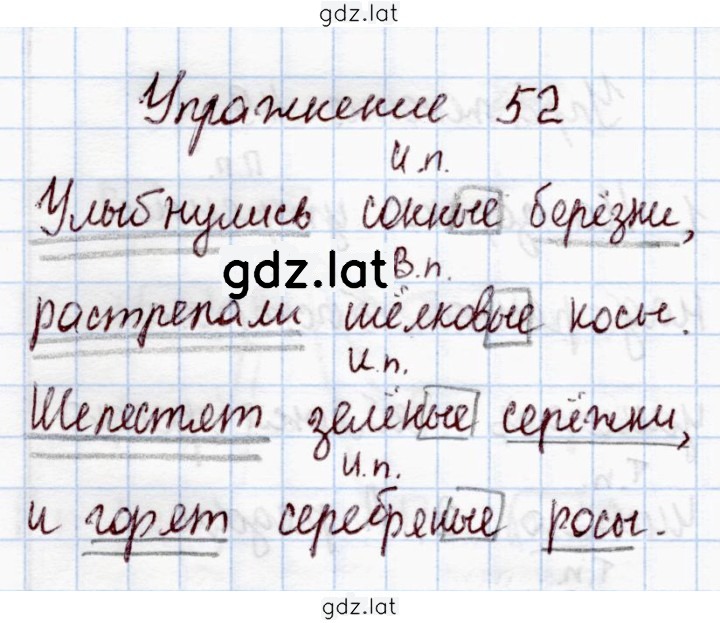 gdz.lat
Упражнение 52
И.п.
Улыбнулись сонные берёзки,
gdz.lat В.п.
растрепали шёлковые косы.
И.п.
Шелестят зелёные серёжки,
И.п.
и горят серебряные росы.
gdz.lat